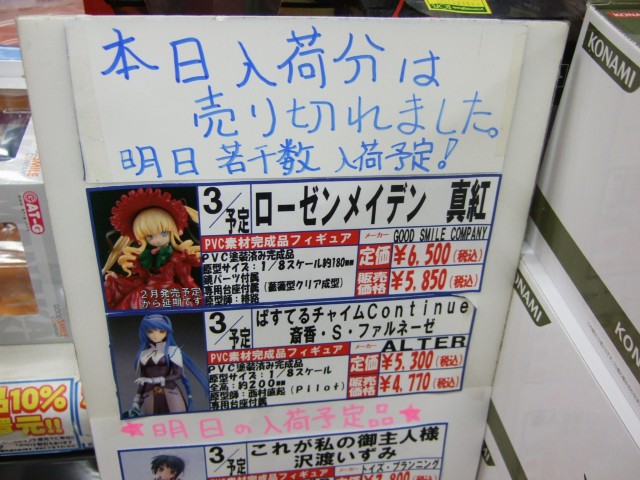 本日入荷分は
売り切れました。
明日若干数入荷予定!
3/予定 ローゼンメイデン 真紅
メーカー GOOD SMILE COMPANY
PVC素材完成品フィギュア
定価 ¥6,500(税込)
PVC塗装済み完成品
原型サイズ:1/8スケール約180mm
専用台座付属(薔薇型クリア成型)
販売価格 ¥5,850(税込)
2月発売予定から延期です
3/予定 ぱすてるチャイムContinue
斎香・S・ファルネーゼ
メーカー ALTER
PVC素材完成品フィギュア
定価 ¥5,300(税込)
PVC塗装済み完成品
原型サイズ:1/8スケール
全高:約200mm
原型師:西村直起(Pilot)
専用台座付属
販売価格 ¥4,770(税込)
★明日の入荷予定品★
3/予定 これが私の御主人様
沢渡いずみ
メーカー トイズ・プランニング
KONAMI
KONAMI
KONAMI
KONAMI
10%
還元!!